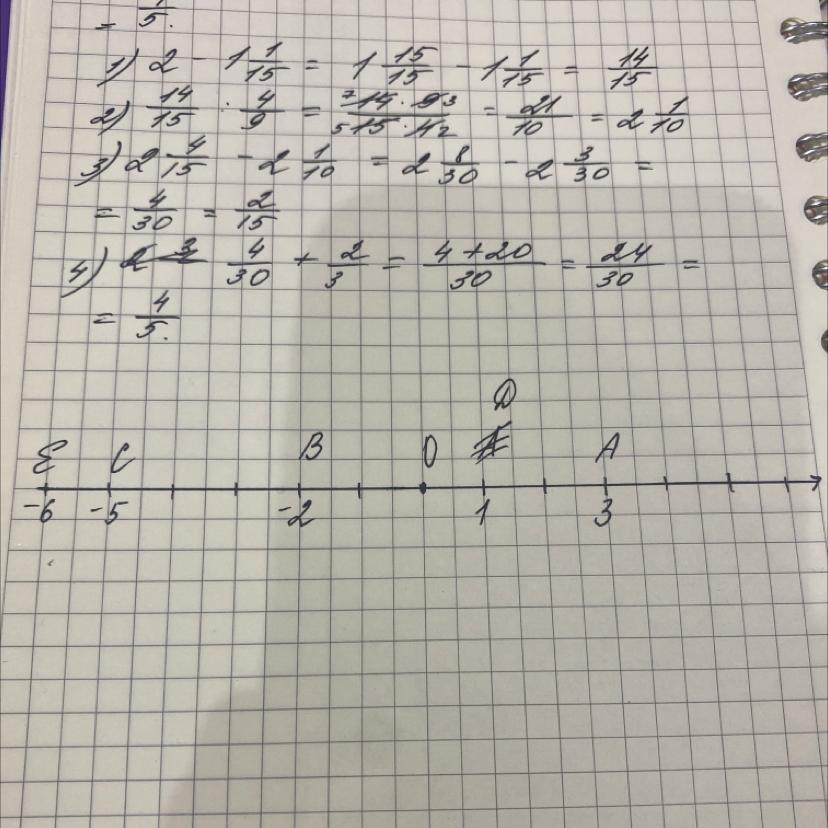 = 1/5.
1) 2 - 1 1/15 = 1 15/15 - 1 1/15 = 14/15
2) 14/15 : 4/9 = 7 14 · 9 3 / 5 15 · 4 2 = 21/10 = 2 1/10
3) 2 4/15 - 2 1/10 = 2 8/30 - 2 3/30 =
= 4/30 = 2/15
4) 4/30 + 2/3 = 4+20/30 = 24/30 =
= 4/5.
D
E C B O A
-6 -5 -2 1 3